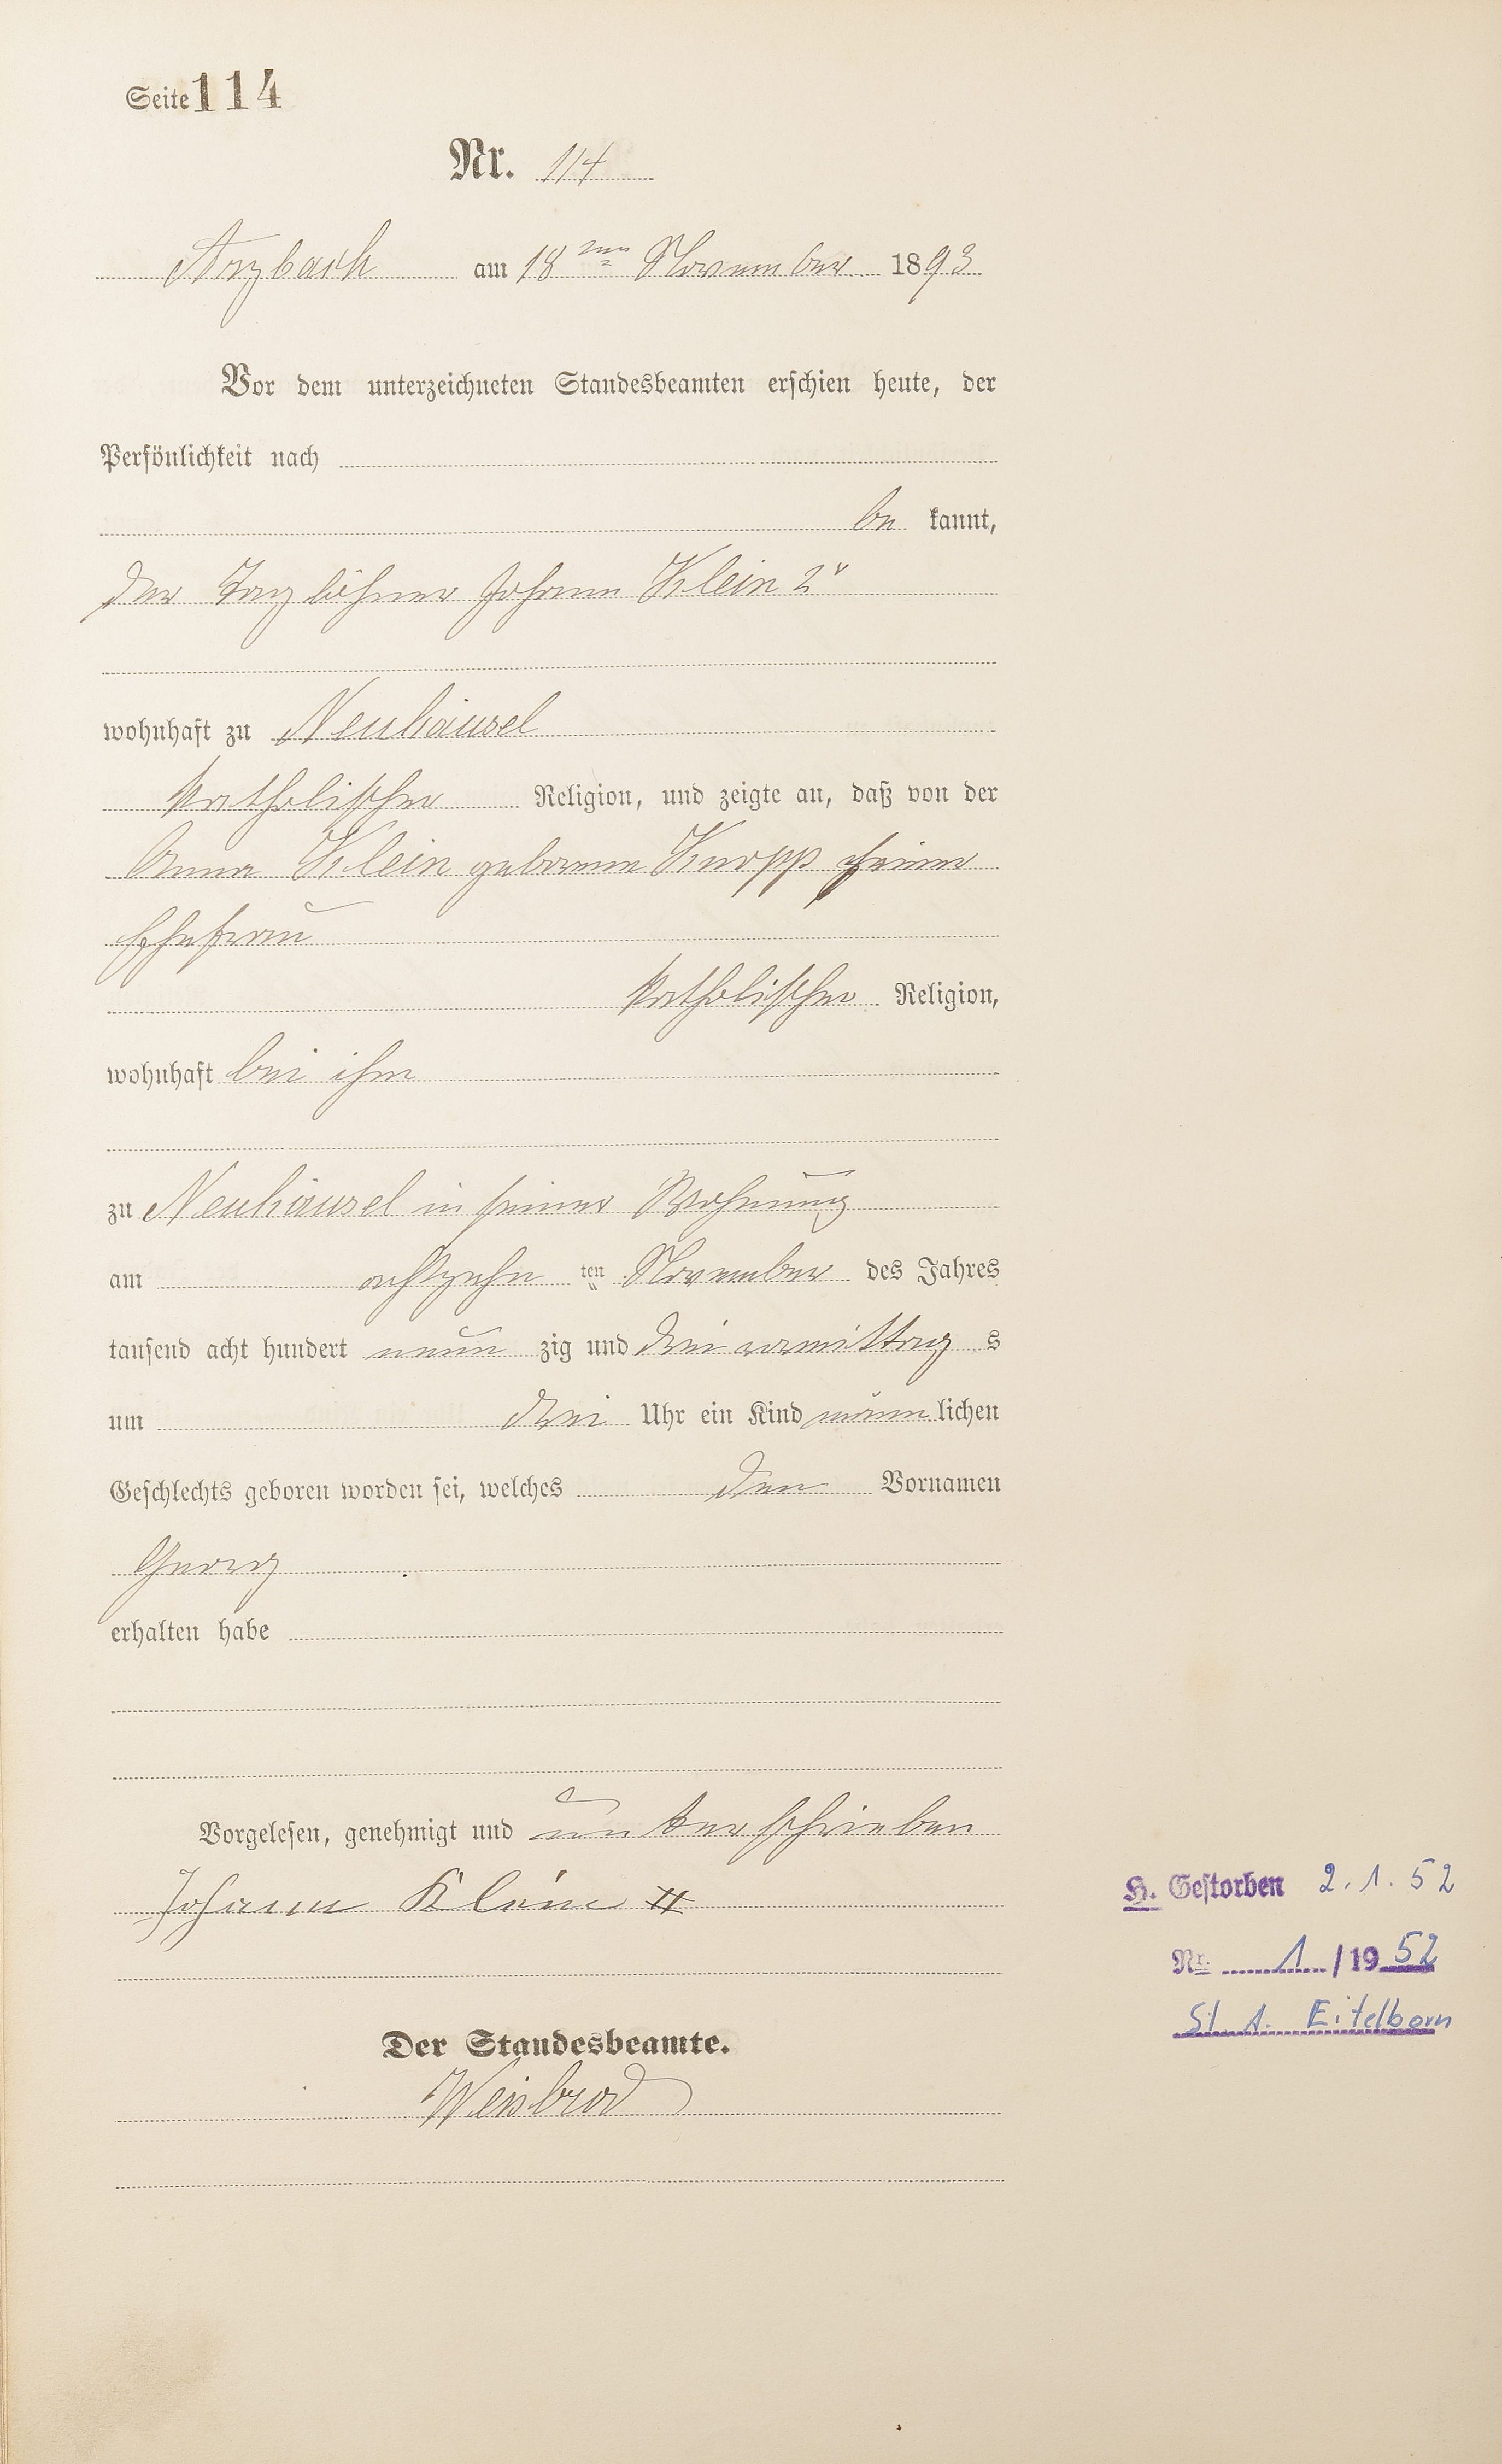 Seite 114
Nr. 114
Arzbach am 18ten November 1893
Vor dem unterzeichneten Standesbeamten erschien heute, der
Persönlichkeit nach
be kannt,
der Taglöhner Johann Klein 2r
wohnhaft zu Neuhäusel
katholischer Religion, und zeigte an, daß von der
Anna Klein geborene Knopp seiner
Ehefrau
katholischer Religion,
wohnhaft bei ihm
zu Neuhäusel in seiner Wohnung
am achtzehn ten November des Jahres
tausend acht hundert neun zig und drei vormittag s
um drei Uhr ein Kind männ lichen
Geschlechts geboren worden sei, welches den Vornamen
Georg
erhalten habe
Vorgelesen, genehmigt und unterschrieben
Johann Klein II
H. Gestorben 2.1.52
Nr. 1/1952
St. A. Eitelborn
Der Standesbeamte.
Weisbrod